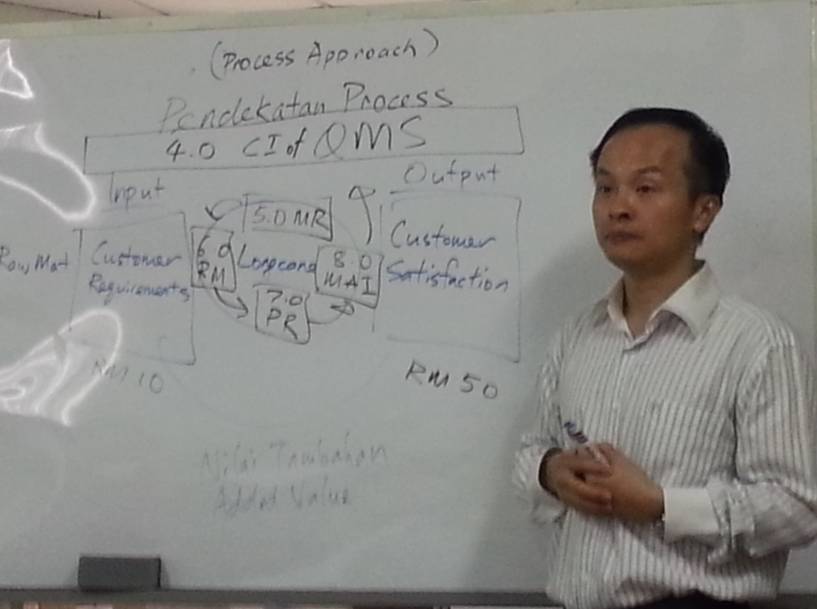 (Process Approach)
Pendekatan Process
4.0 CI of QMS
Input
Output
5.0 MR
Raw Mat
Customer
Requirements
6.0
RM
8.0
MAI
7.0
PR
Customer
Satisfaction
RM 10
RM 50
Nilai Tambahan
Added Value